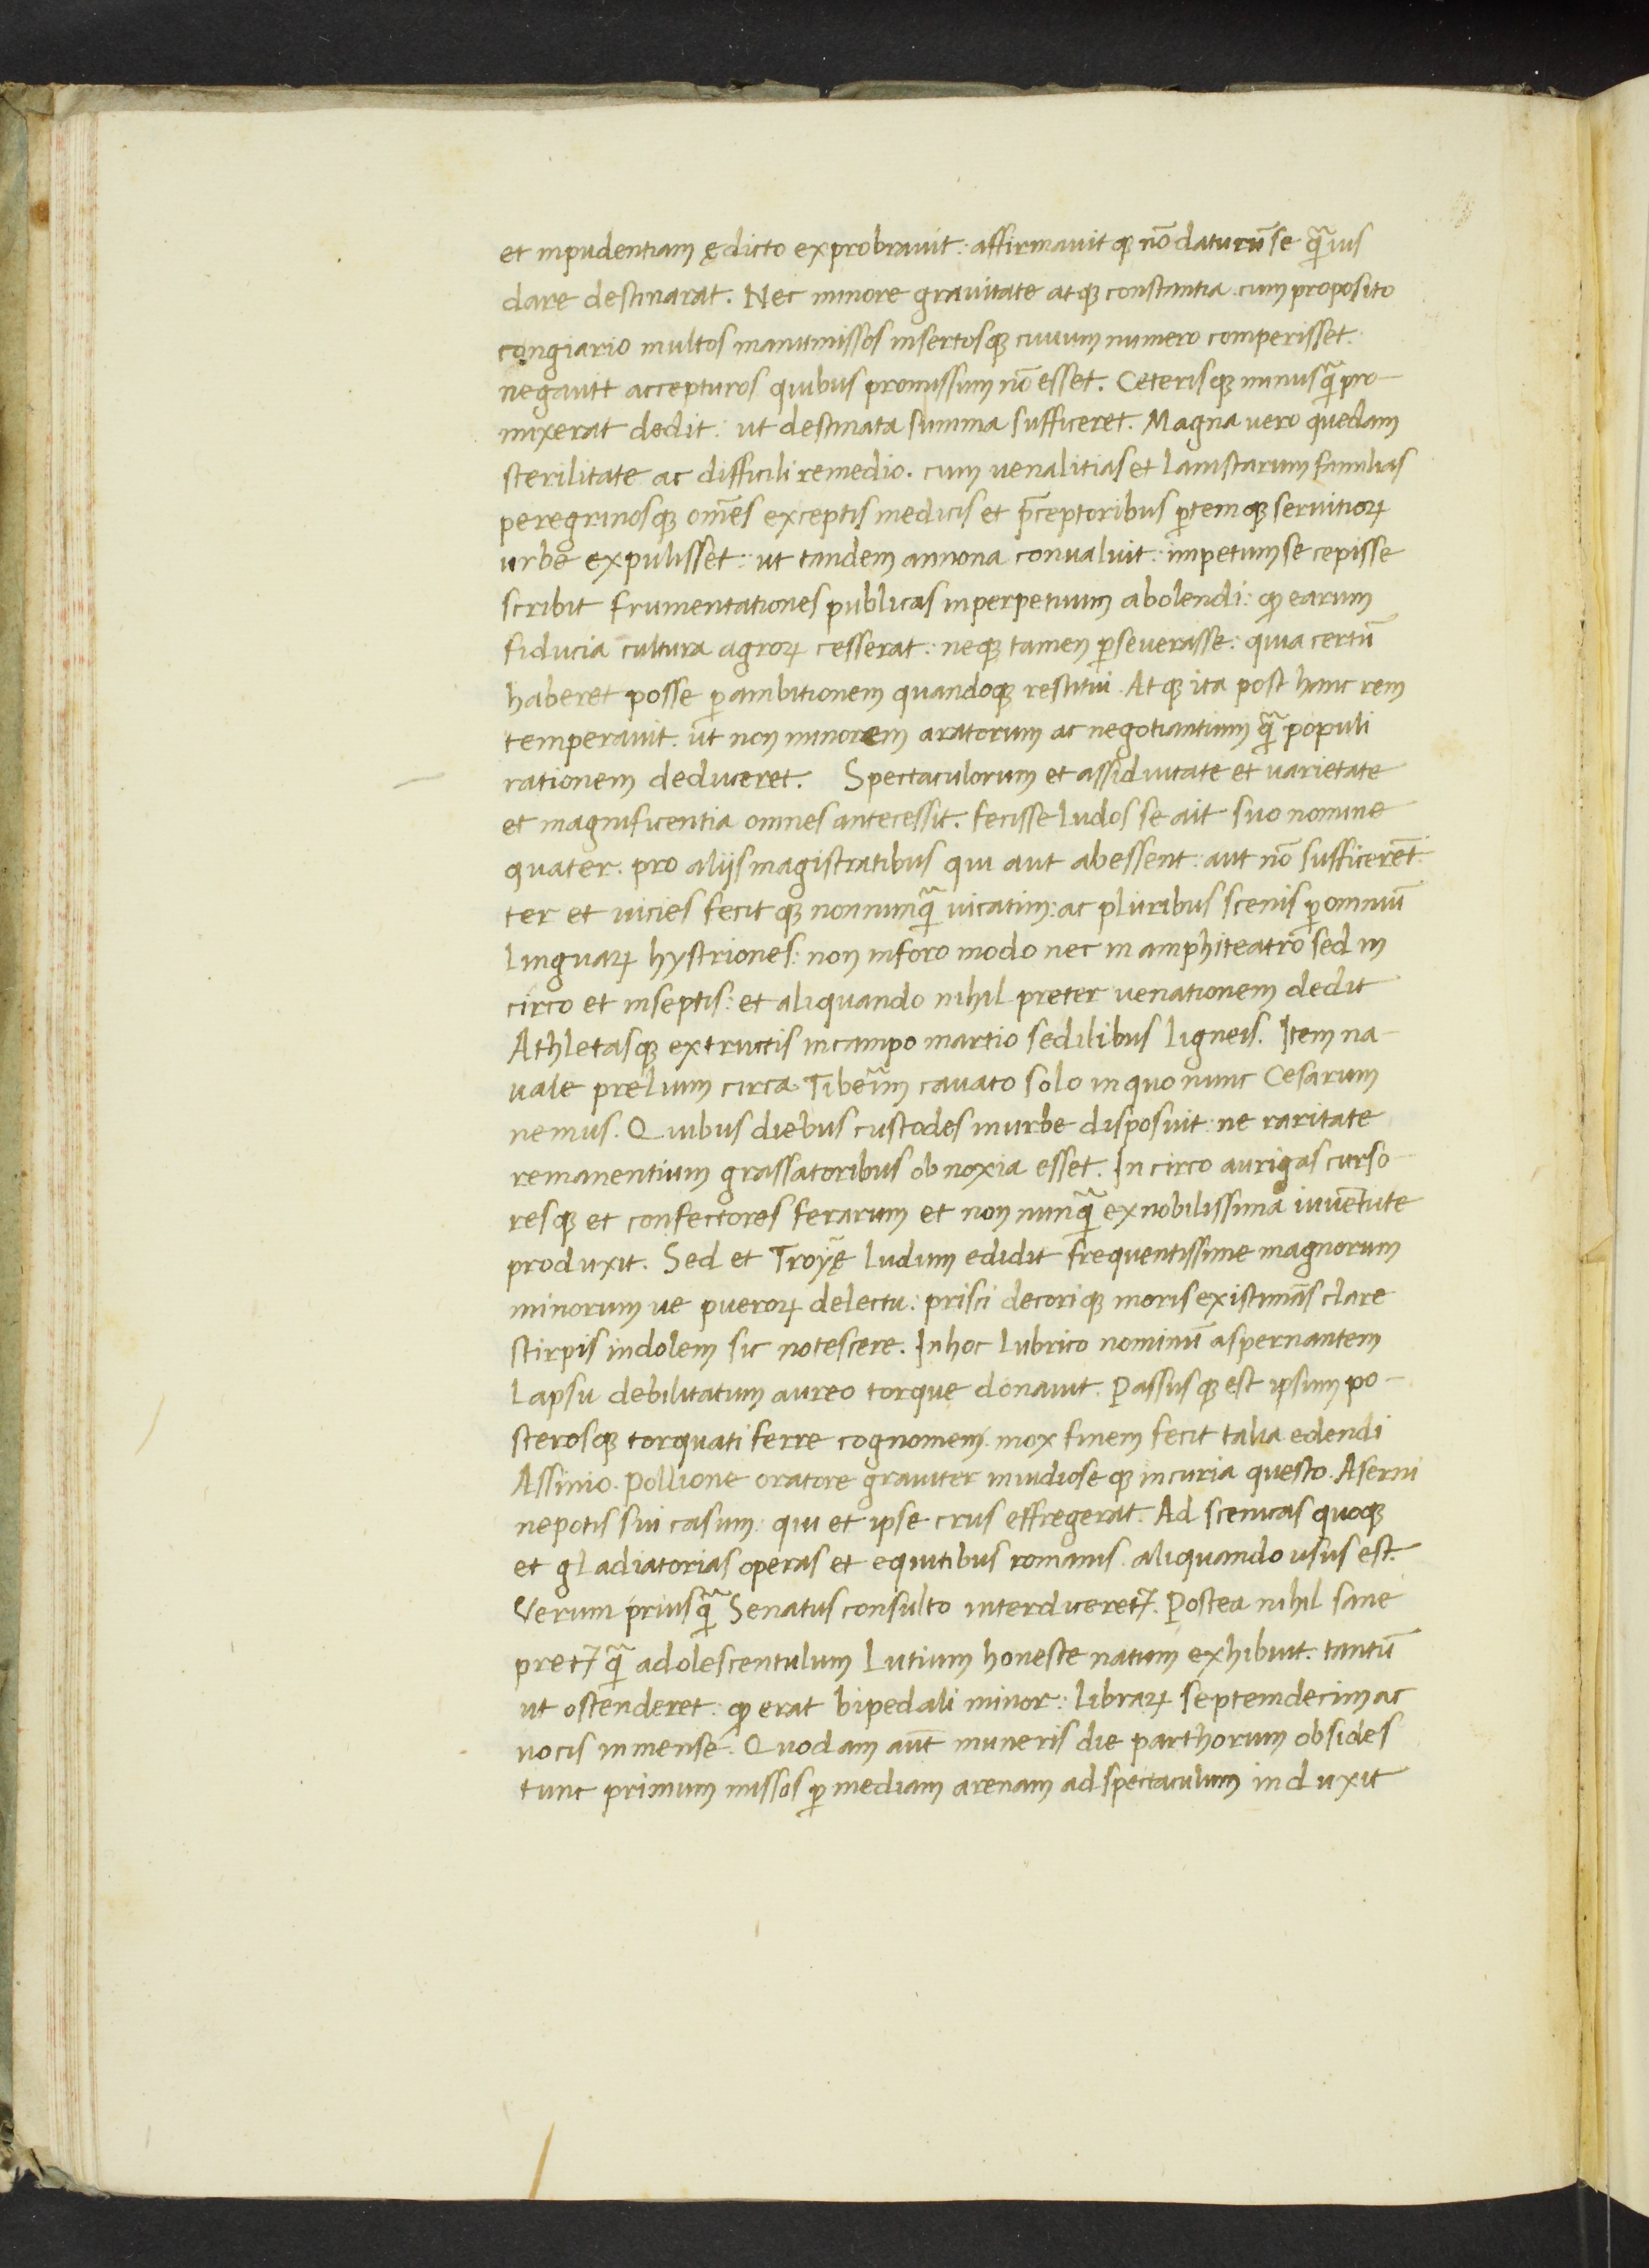 et inpudentiam ędicto exprobravit: affirmavit qꝫ nō daturū se qͣ̄vis
dare destinarat. Nec minore gravitate atqꝫ constantia. cum proposito
congiario multos manumissos insertosqꝫ civium numero comperisset.
negavit accepturos quibus promissum nō esset. Ceterisqꝫ minus qͣ̄ pro-
mixerat dedit: ut destinata summa sufficeret. Magna vero quedam
sterilitate ac difficili remedio. cum venalitias et lanistarum familias
peregrinosqꝫ om̄es exceptis medicis et p̄ceptoribus ꝑtemqꝫ servitioꝝ
urbe expulisset: ut tandem annona convaluit: impetum se cepisse
scribit frumentationes publicas in perpetuum abolendi: ꝙ earum
fiducia cultura agroꝝ cesserat: neqꝫ tamen ꝑseverasse: quia certū
haberet posse ꝑ ambitionem quandoqꝫ restitui. Atqꝫ ita post hanc rem
temperavit. ut non minorem aratorum ac negotiantium qͣ̄ populi
rationem deduceret. Spectaculorum et assiduitate et varietate
et magnificentia omnes antecessit. fecisse ludos se ait suo nomine
quater. pro aliis magistratibus qui aut abessent: aut nō sufficerēt:
ter et vicies fecit qꝫ nonnunqͣ̄ vicatim: ac pluribus scenis ꝑ omniū
linguaꝝ hystriones: non in foro modo nec in amphiteatro sed in
circo et in septis: et aliquando nihil preter venationem dedit
Athletasqꝫ extructis in campo martio sedilibus ligneis. Item na-
vale prelium circa Tiberim cavato solo in quo nunc Cesarum
nemus. Quibus diebus custodes in urbe disposuit: ne raritate
remanentium grassatoribus obnoxia esset. In circo aurigas curso-
resqꝫ et confectores ferarum et non nunqͣ̄ ex nobilissima iuvētute
produxit. Sed et Troyę ludum edidit frequentissime magnorum
minorum ve pueroꝝ delectu: prisci decoriqꝫ moris existimās clare
stirpis indolem sic notescere. In hoc lubrico nominū aspernantem
Lapsu debilitatum aureo torque donavit. Passusqꝫ est ipsum po-
sterosqꝫ torquati ferre cognomen. mox finem fecit talia edendi
Assinio. Pollione oratore graviter invidioseqꝫ in curia questo. Aserni
nepotis sui casum: qui et ipse crus effregerat. Ad scenicas quoqꝫ
et gladiatorias operas et equitibus romanis aliquando usus est.
Verum priusqͣ̄ Senatus consulto interdiceretꝛ. Postea nihil sane
pretꝛ qͣ̄ adolescentulum Lutium honeste natum exhibuit. tantū
ut ostenderet: ꝙ erat bipedali minor: libraꝝ septemdecim ac
vocis inmense. Quodam aūt muneris die parthorum obsides
tunc primum missos ꝑ mediam arenam ad spectaculum induxit